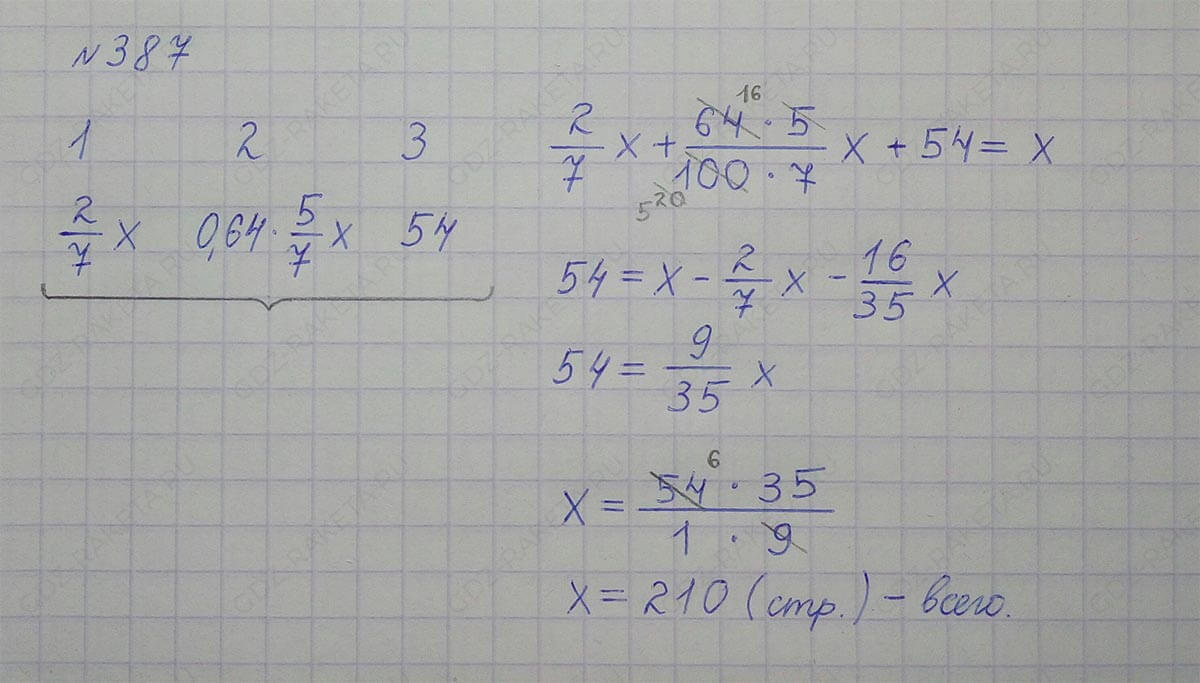 №387
1 2 3
2/7 x 0,64 · 5/7 x 54
2/7 x + 64 · 5 / 100 · 7 x + 54 = x
16
5 20
54 = x - 2/7 x - 16/35 x
54 = 9/35 x
x = 54 · 35 / 1 · 9
6
x = 210 (стр.) - всего.
GDZ-RAKETA.RU